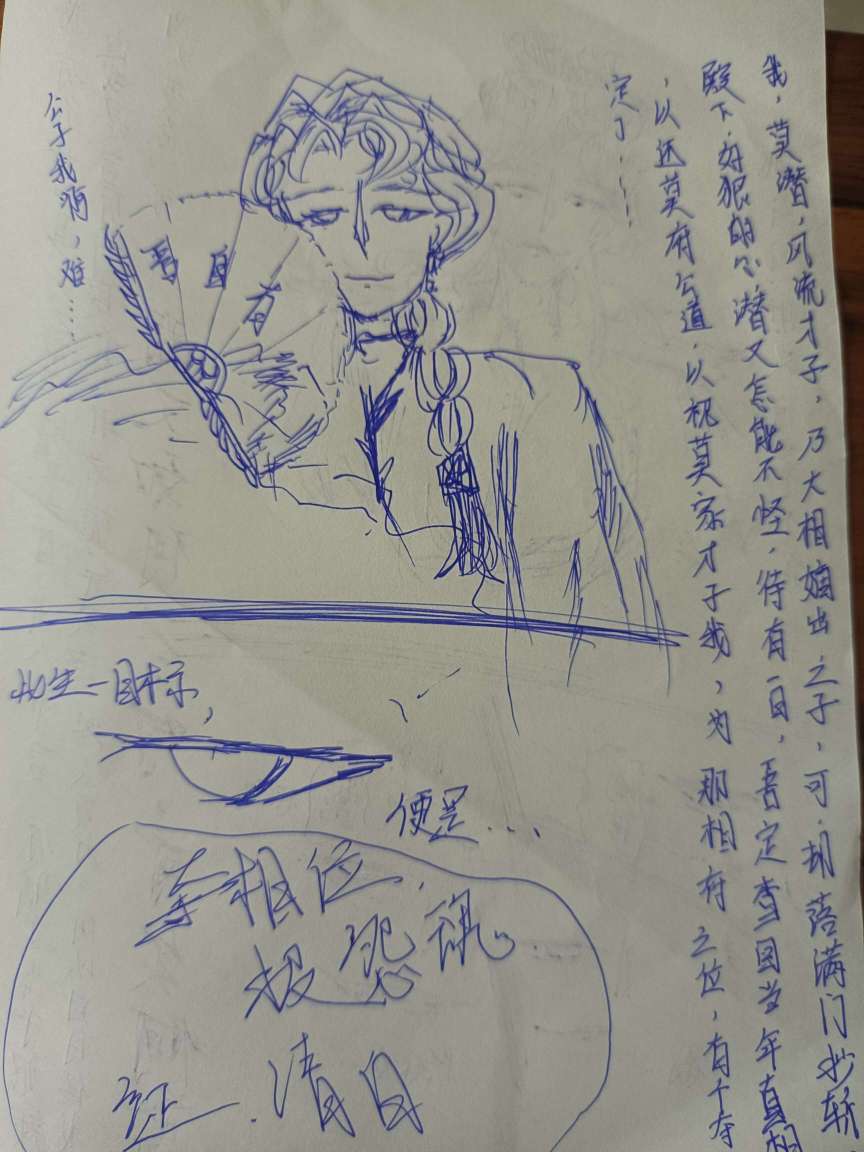 我，莫潜，风流才子，乃大相嫡出之子，可，却落满门抄斩
殿下，好狠的心潜又怎能不怪，待有一日，吾定查回当年真相
，以还莫府公道，以祝莫家才子我，为那相府之位，有个夺
定了……
公子我啊，难……
吾自有
此生一目标，
便是…
夺相位，
报恩
证清白